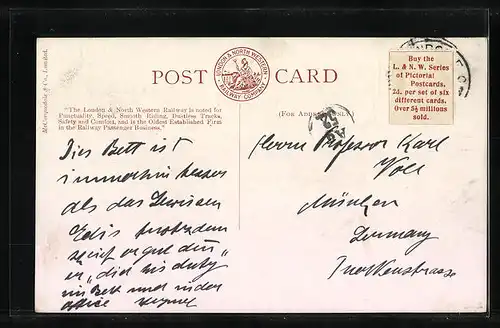 McCorquodale & Co., Limited.
POST CARD
LONDON & NORTH WESTERN
RAILWAY COMPANY
Buy the
L. & N. W. Series
of Pictorial
Postcards,
2d. per set of six
different cards.
Over 5½ millions
sold.
"The London & North Western Railway is noted for
Punctuality, Speed, Smooth Riding, Dustless Tracks,
Safety and Comfort, and is the Oldest Established Firm
in the Railway Passenger Business."
(FOR ADDRESS ONLY.)
Dies Bett ist
immerhin besser
als das Gewissen
Edis trotzdem
er gut denn
er „did his duty"
im Bett und in der
office
Herrn Professor Karl
Voll
München
Germany